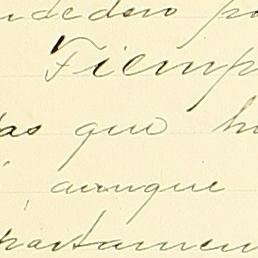 ndedero po
Tiemp
las que h
aunque
partamen